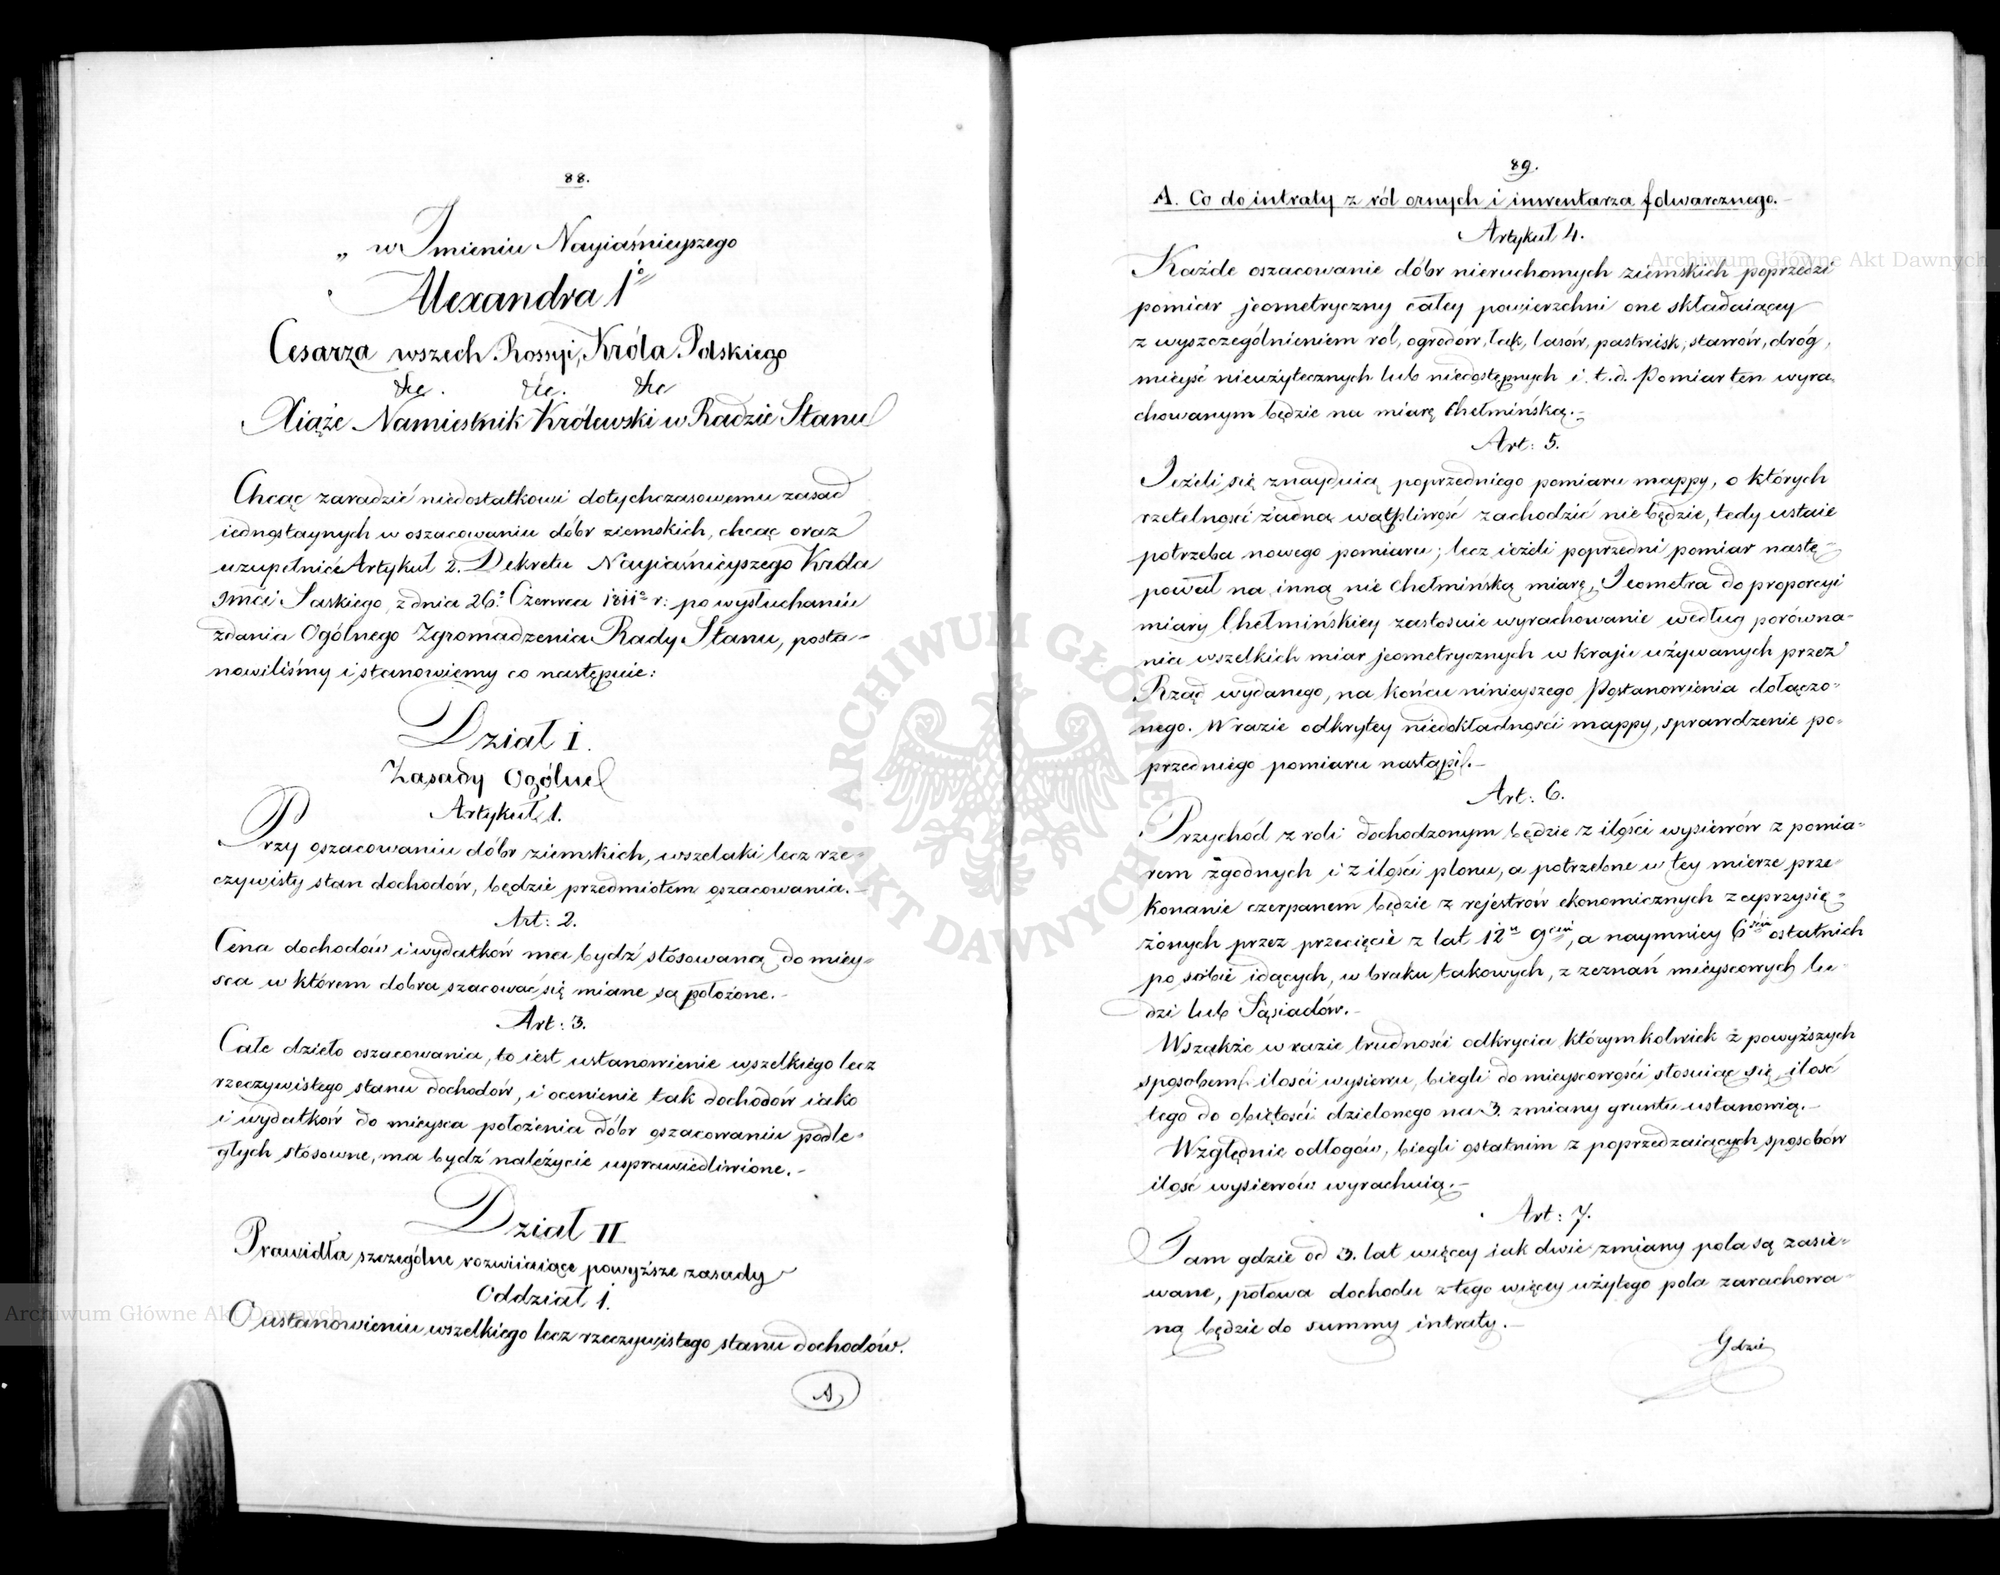 88.
„ w Imieniu Nayiaśnieyszego
Alexandra 1º
Cesarza wszech Rossyi, Króla Polskiego
&c. &c. &c
Xiąże Namiestnik Królewski w Radzie Stanu
Chcąc zaradzić niedostatkowi dotychczasowemu zasad
iednostaynych w oszacowaniu dóbr ziemskich, chcąc oraz
uzupełnić Artykuł 2. Dekretu Nayiaśnieyszego Króla
Imći Saskiego z dnia 26º Czerwca 1811º r: po wysłuchaniu
zdania Ogólnego Zgromadzenia Rady Stanu, posta-
nowiliśmy i stanowiemy co następuie:
Dział I.
Zasady Ogólne
Artykuł 1.
Przy oszacowaniu dóbr ziemskich, wszelaki lecz rze-
czywisty stan dochodów, będzie przedmiotem oszacowania.-
Art: 2.
Cena dochodów i wydatków ma bydź stósowaną do miey-
sca w którem dobra szacować się miane są położone.-
Art: 3.
Całe dzieło oszacowania, to iest ustanowienie wszelkiego lecz
rzeczywistego stanu dochodów, i ocenienie tak dochodów iako
i wydatków do mieysca położenia dóbr oszacowaniu podle-
głych stósowne, ma bydź należycie usprawiedliwione.-
Dział II
Prawidła szczególne rozwiiaiące powyższe zasady
Oddział 1.
O ustanowieniu wszelkiego lecz rzeczywistego stanu dochodów.
A,
89.
A. Co do intraty z ról ornych i inwentarza folwarcznego.-
Artykuł 4.
Każde oszacowanie dóbr nieruchomych ziemskich poprzedzi
pomiar jeometryczny całey powierzchni one składaiącey
z wyszczególnieniem ról, ogrodów, łąk, lasów, pastwisk, stawów, dróg,
mieysć nieużytecznych lub niedostępnych i. t. d. Pomiar ten wyra-
chowanym będzie na miarę Chełmińską.-
Art: 5.
Jeżeli się znayduią poprzedniego pomiaru mappy, o których
rzetelności żadna wątpliwość zachodzić nie będzie, tedy ustaie
potrzeba nowego pomiaru; lecz ieżeli poprzedni pomiar nastę-
pował na inną nie Chełmińską miarę, Jeometra do proporcyi
miary Chełmińskiey zastosuie wyrachowanie według porówna-
nia wszelkich miar jeometrycznych w kraju używanych przez
Rząd wydanego, na końcu ninieyszego Postanowienia dołączo-
nego. W razie odkrytey niedokładności mappy, sprawdzenie po-
przedniego pomiaru nastąpi.-
Art: 6.
Przychód z roli dochodzonym będzie z ilości wysiewów z pomia-
rem zgodnych i z ilości plonu, a potrzebne w tey mierze prze-
konanie czerpanem będzie z rejestrów ekonomicznych zaprzysię-
żonych przez przecięcie z lat 12u 9ciu, a naymniey 6ściu ostatnich
po sobie idących, w braku takowych, z zeznań mieyscowych lu-
dzi lub Sąsiadów.-
Wszakże w razie trudności odkrycia którymkolwiek z powyższych
sposobem ilości wysiewu, biegli do mieyscowości stosuiąc się, ilość
tego do obiętości dzielonego na 3. zmiany gruntu ustanowią.-
Względnie odłogów, biegli ostatnim z poprzedzaiących sposobów
ilość wysiewów wyrachuią.-
Art: 7.
Tam gdzie od 3. lat więcey iak dwie zmiany pola są zasie-
wane, połowa dochodu z tego więcey użytego pola zarachowa-
ną będzie do summy intraty.-
Gdzie
Archiwum Główne Akt Dawnych
Archiwum Główne Akt Dawnych
ARCHIWUM GŁÓWNE AKT DAWNYCH